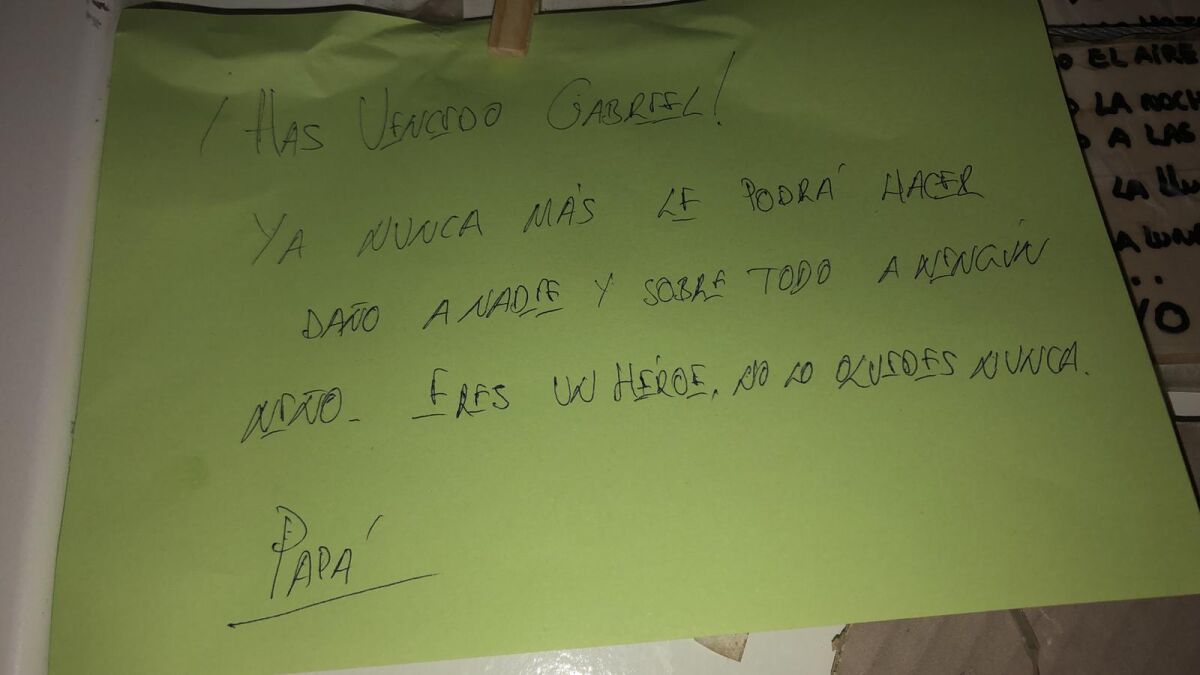 ¡HAS VENCIDO GABRIEL!
YA NUNCA MÁS LE PODRÁ HACER
DAÑO A NADIE Y SOBRE TODO A NINGÚN
NIÑO. ERES UN HÉROE, NO LO OLVIDES NUNCA.
PAPÁ
EL AIRE
LA NOCH
A LAS
LA LLU
A LUNA
...
YO